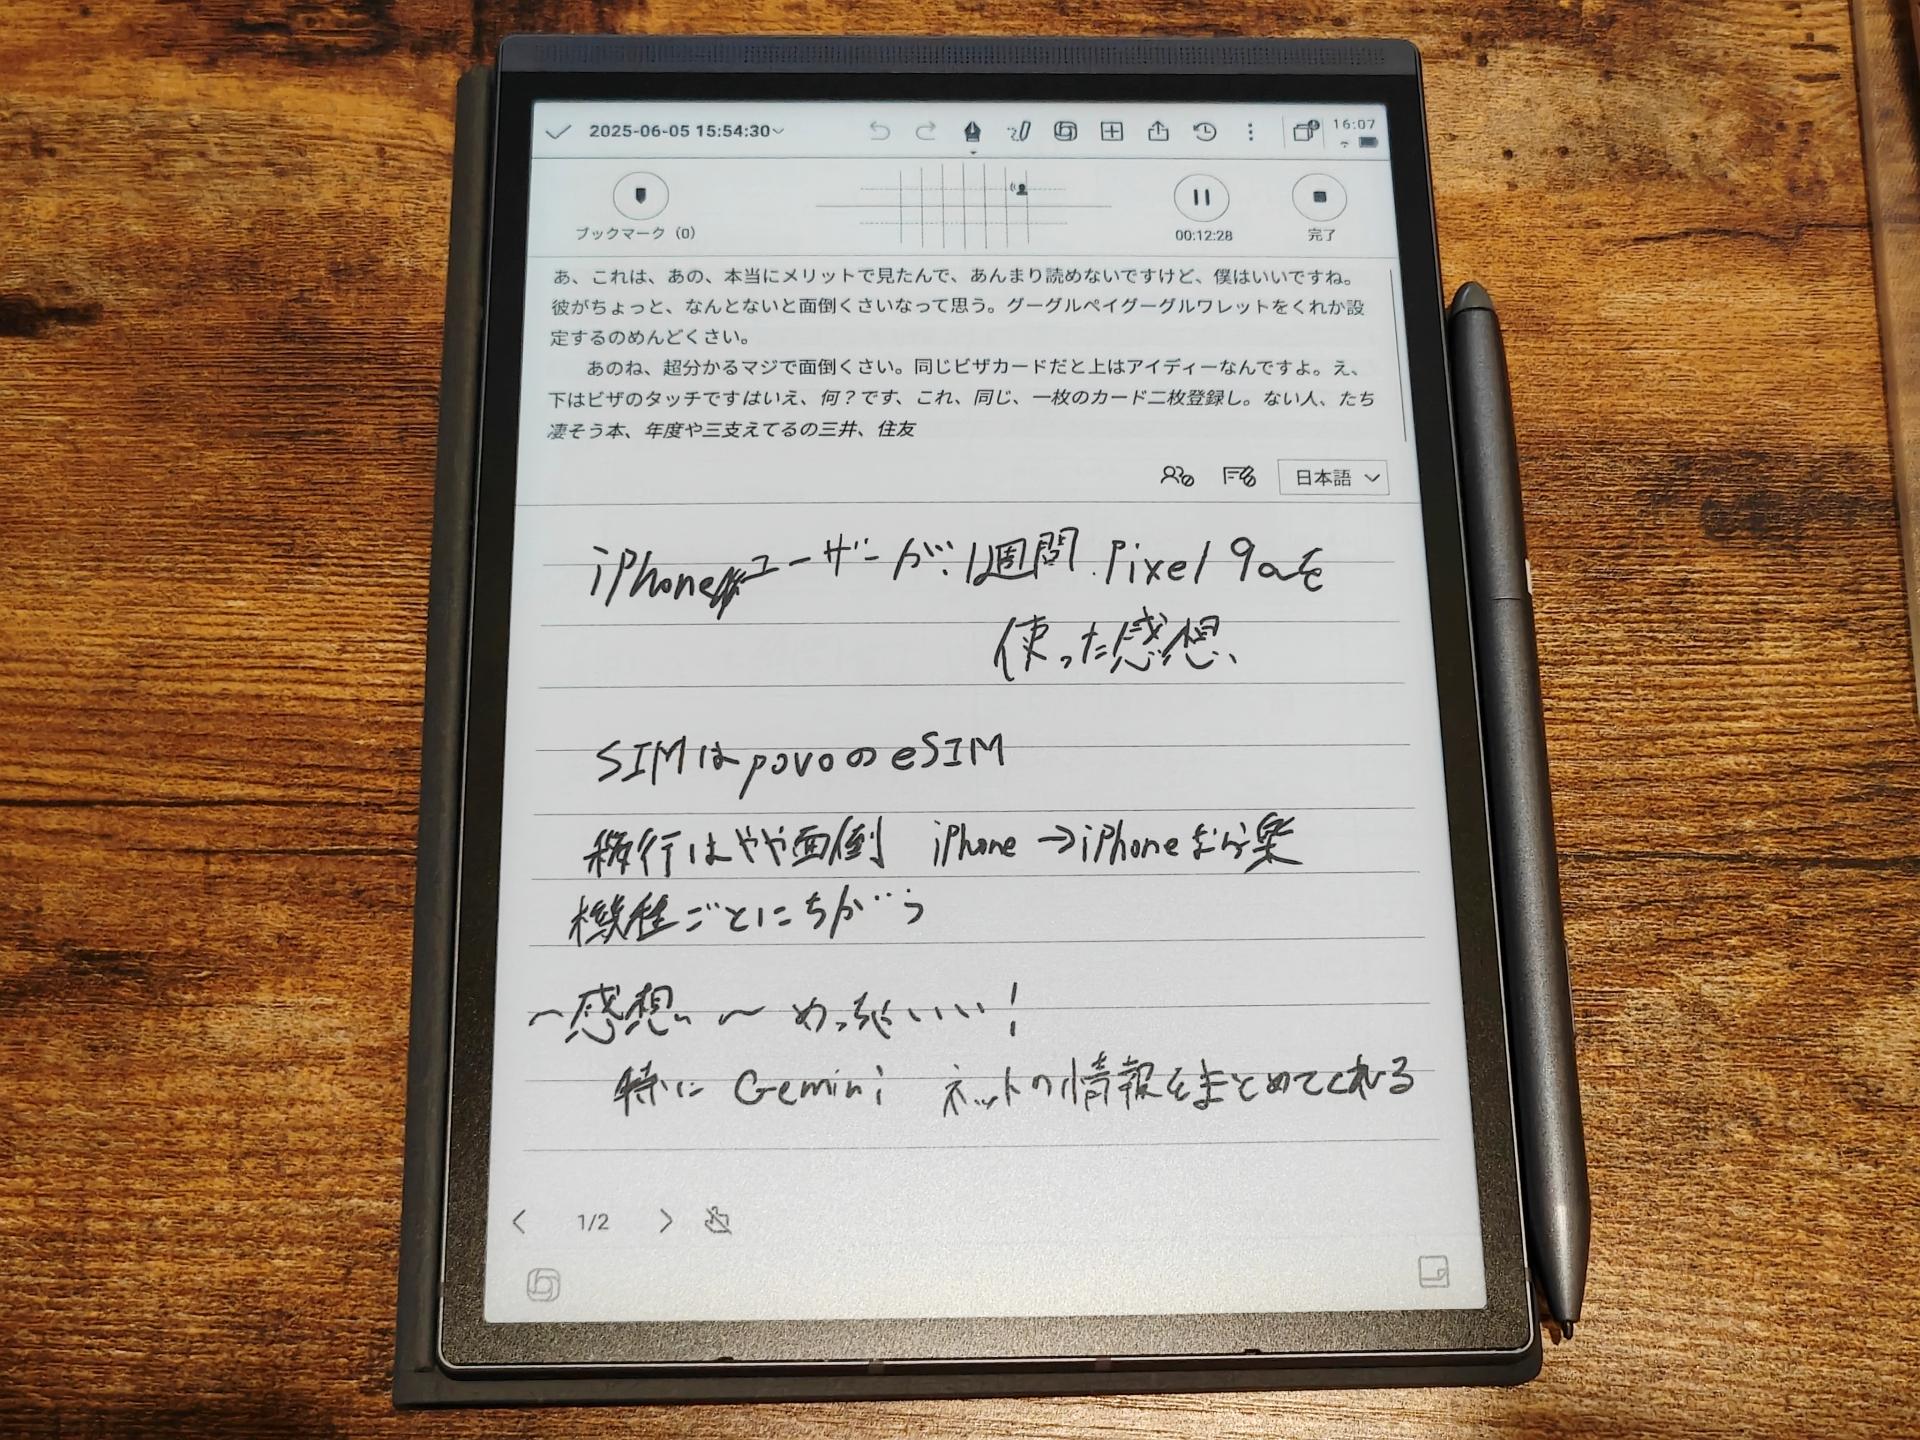 2025-06-05 15:54:30
16:07
ブックマーク（0）
00:12:28
完了
あ、これは、あの、本当にメリットで見たんで、あんまり読めないですけど、僕はいいですね。
彼がちょっと、なんとないと面倒くさいなって思う。グーグルペイグーグルワレットをくれか設
定するのめんどくさい。
あのね、超分かるマジで面倒くさい。同じビザカードだと上はアイディーなんですよ。え、
下はビザのタッチですはいえ、何？です、これ、同じ、一枚のカード二枚登録し。ない人、たち
凄そう本、年度や三支えてるの三井、住友
日本語
iPhoneユーザーが1週間 Pixel 9aを
使った感想
SIMはpovoのeSIM
移行はやや面倒 iPhone→iPhoneなら楽
機種ごとにちがう
〜感想〜 めっちゃいい！
特に Gemini ネットの情報をまとめてくれる
1/2